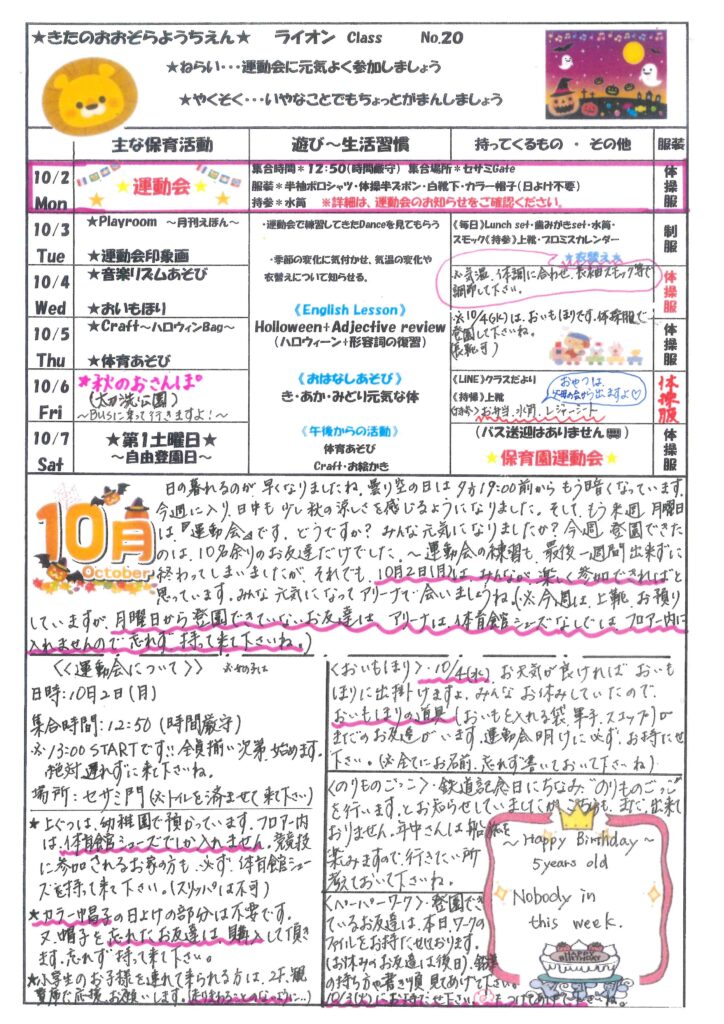 ★きたのおおぞらようちえん★ ライオン Class No.20
★ねらい・・・運動会に元気よく参加しましょう
★やくそく・・・いやなことでもちょっとがまんしましょう
主な保育活動 遊び～生活習慣 持ってくるもの ・ その他 服装
10/2
Mon
運動会
集合時間＊12:50(時間厳守) 集合場所＊セサミGate
服装＊半袖ポロシャツ・体操半ズボン・白靴下・カラー帽子(日よけ不要)
持参＊水筒 ※詳細は、運動会のお知らせをご確認ください。
体操服
10/3
Tue
★Playroom ～月刊えほん～
★運動会印象画
・運動会で練習してきたDanceを見てもらう
・季節の変化に気付かせ、気温の変化や
衣替えについて知らせる。
《毎日》Lunch set・歯みがきset・水筒・
スモック《持参》上靴・プロミスカレンダー
★衣替え★
制服
10/4
Wed
★音楽リズムあそび
★おいもほり
《English Lesson》
Holloween+Adjective review
(ハロウィーン+形容詞の復習)
※気温、体調に合わせ、長袖スモック等で
調節して下さい。
体操服
10/5
Thu
★Craft～ハロウィンBag～
★体育あそび
・※10/4(水)は、おいもほりです。体操服で
登園して下さいね。
(長靴可)
体操服
10/6
Fri
★秋のおさんぽ
(大刀洗公園)
～Busに乗って行きますよ！～
《おはなしあそび》
き・あか・みどり元気な体
《LINE》クラスだより
《持帰》上靴
おやつは、
父母の会から出ますよ♡
(持参)お弁当、水筒、レジャーシート
体操服
10/7
Sat
★第１土曜日★
～自由登園日～
《午後からの活動》
体育あそび
Craft・お絵かき
(バス送迎はありません)
★保育園運動会★
体操服
10月
October
日の暮れるのが早くなりましたね。曇り空の日は夕方19:00前からもう暗くなっています。
今週に入り、日中も少し秋の涼しさを感じるようになりました。そして、もう来週月曜日
は『運動会』です。どうですか？みんな元気になりましたか？今週登園できた
のは、10名余りのお友達だけでした。～運動会の練習も、最後一週間出来ずに
終わってしまいましたが、それでも、10月2日(月)は、みんなが楽しく参加できればと
思っています。みんな元気になってアリーナで会いましょうね。(※今週は、上靴、お預り
していますが、月曜日から登園できていないお友達は、アリーナは、体育館シューズなしではフロアー内に
入れませんので忘れず持って来て下さいね。)
《運動会について》
日時:10月2日(月)
集合時間:12:50 (時間厳守)
※13:00 STARTです!!全員揃い次第始めます。
絶対遅れずに来て下さいね。
場所:セサミ門(※トイレを済ませて来て下さい)
★上ぐつは、幼稚園で預かっています。フロアー内
は、体育館シューズでしか入れません。競技
に参加されるお家の方も、必ず、体育館シュー
ズを持って来て下さい。(スリッパは不可)
★カラー帽子の日よけの部分は不要です。
又、帽子を忘れたお友達は、購入して頂き
ます。忘れず持って来て下さい。
★小学生のお子様を連れて来られる方は、2F、観
覧席で応援、お願いします。(走りまわることのないように…)
〈おいもほり〉・10/4(水)、お天気が良ければ、おいも
ほりに出掛けますよ。みんなお休みしていたので、
おいもほりの道具(おいもを入れる袋、軍手、スコップ)が
まだのお友達がいます。運動会明けに必ず、お持たせ
下さい。(※全てにお名前、忘れず書いておいて下さいね)
〈のりものごっこ〉・鉄道記念日にちなみ、“のりものごっこ”
を行います。とお知らせしていましたが、こちらも、まだ、出来て
おりません。年中さんは船を
楽みますので、行きたい所
考えておいて下さいね。
〈ペーパーワーク〉・登園でき
ているお友達は、本日、ワークの
ファイルをお持たせしております。
(お休みのお友達は後日)、鉛筆
の持ち方や書き順、見てあげて下さい。
10/3(火)にお持たせ下さい。
～Happy Birthday～
5 years old
Nobody in
this week.
HAPPY
BIRTHDAY